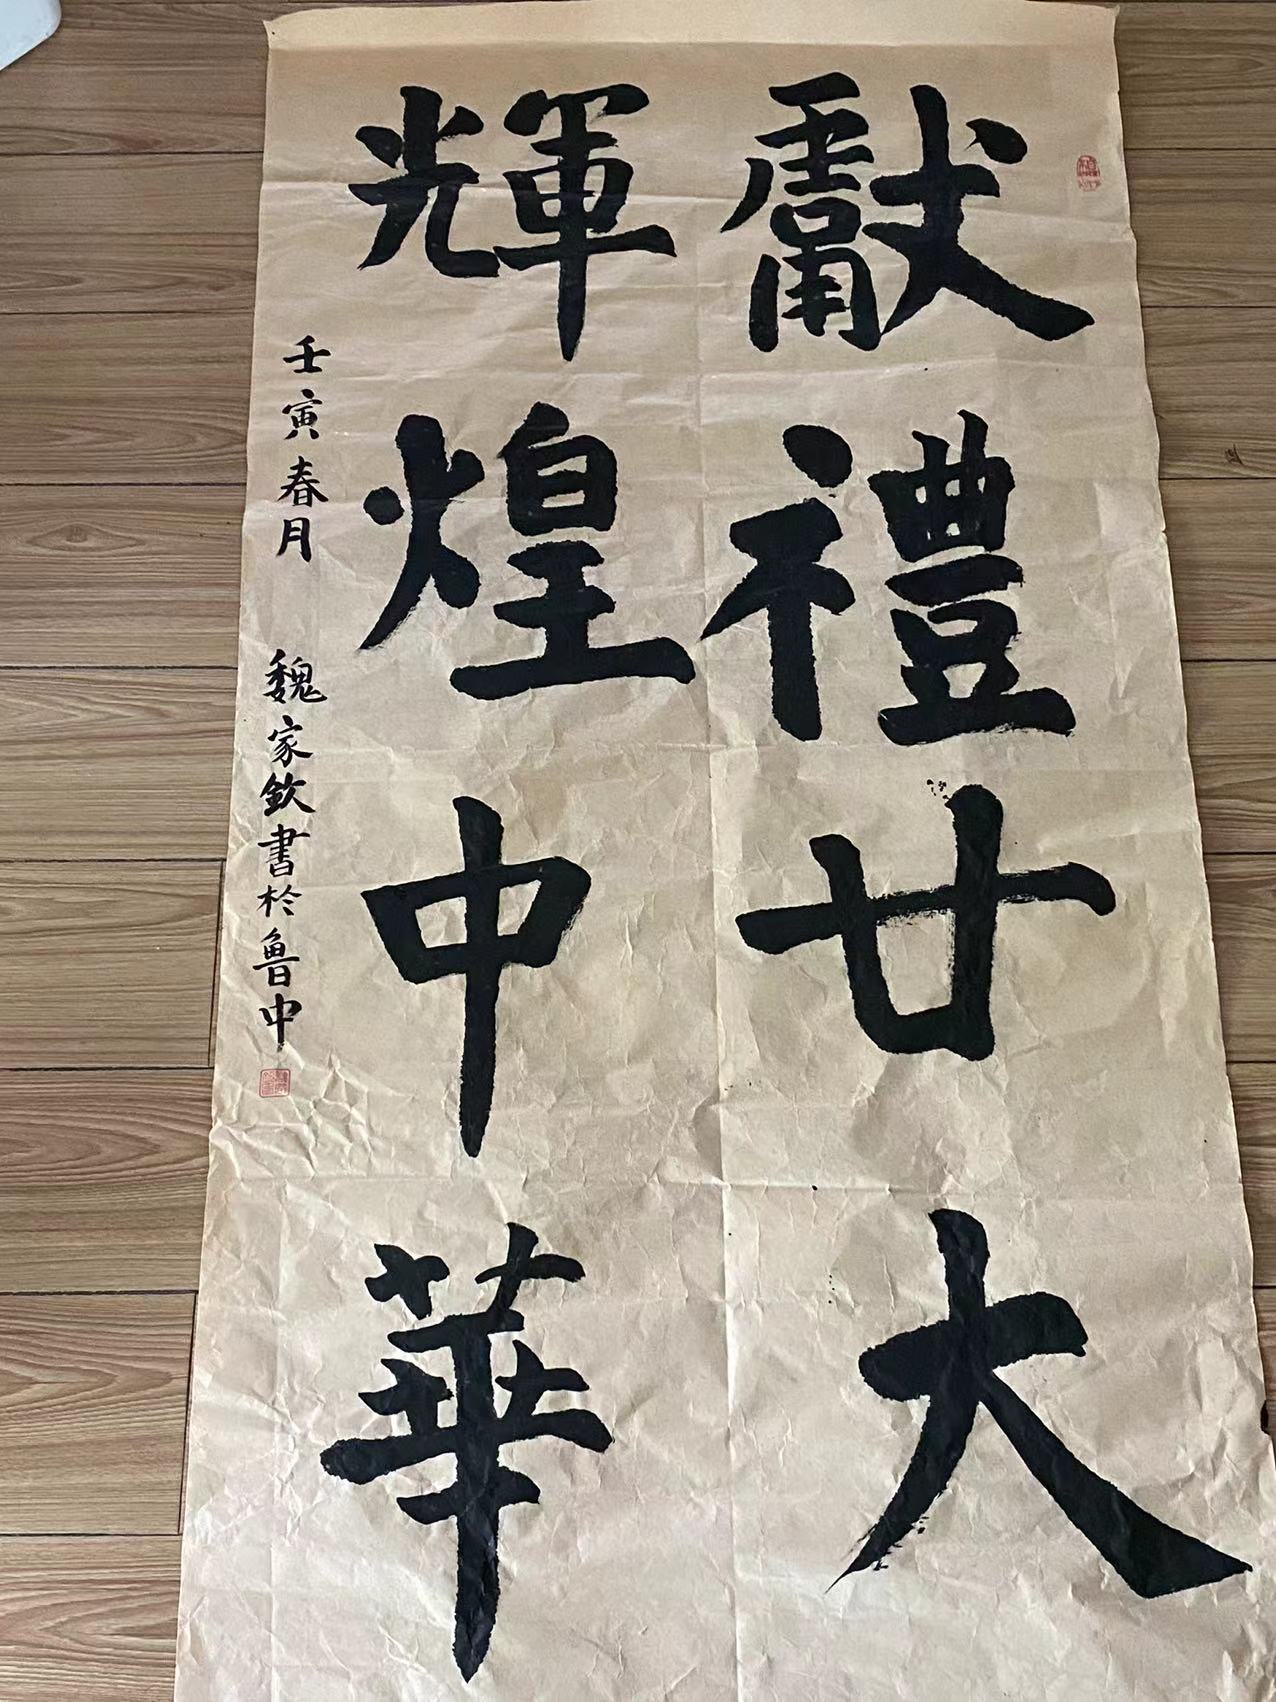 獻禮廿大
輝煌中華
壬寅春月 魏家欽書於魯中